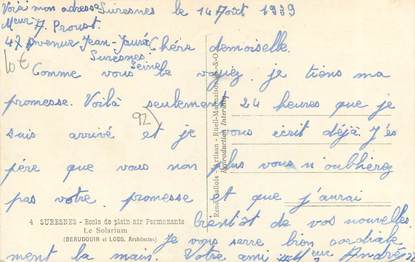 Voici mon adresse Suresnes le 14 Août 1939
Meur A. Proust
47 Avenue Jean-Jaurès Chère demoiselle.
Suresnes
Seine
10 €
Comme vous le voyiez je tiens ma
promesse. Voilà seulement 24 heures que je
suis arrivé et je vous écrit déjà. J'es
père que vous non plus vous n'oublierez
pas votre promesse et que j'aurai
bientôt de vos nouvelles.
Je vous serre bien cordiale
ment la main. Votre ami André
92
4 SURESNES - Ecole de plein air Permanente
Le Solarium
(BEAUDOUIN et LODS, Architectes)
Reproduction Interdite